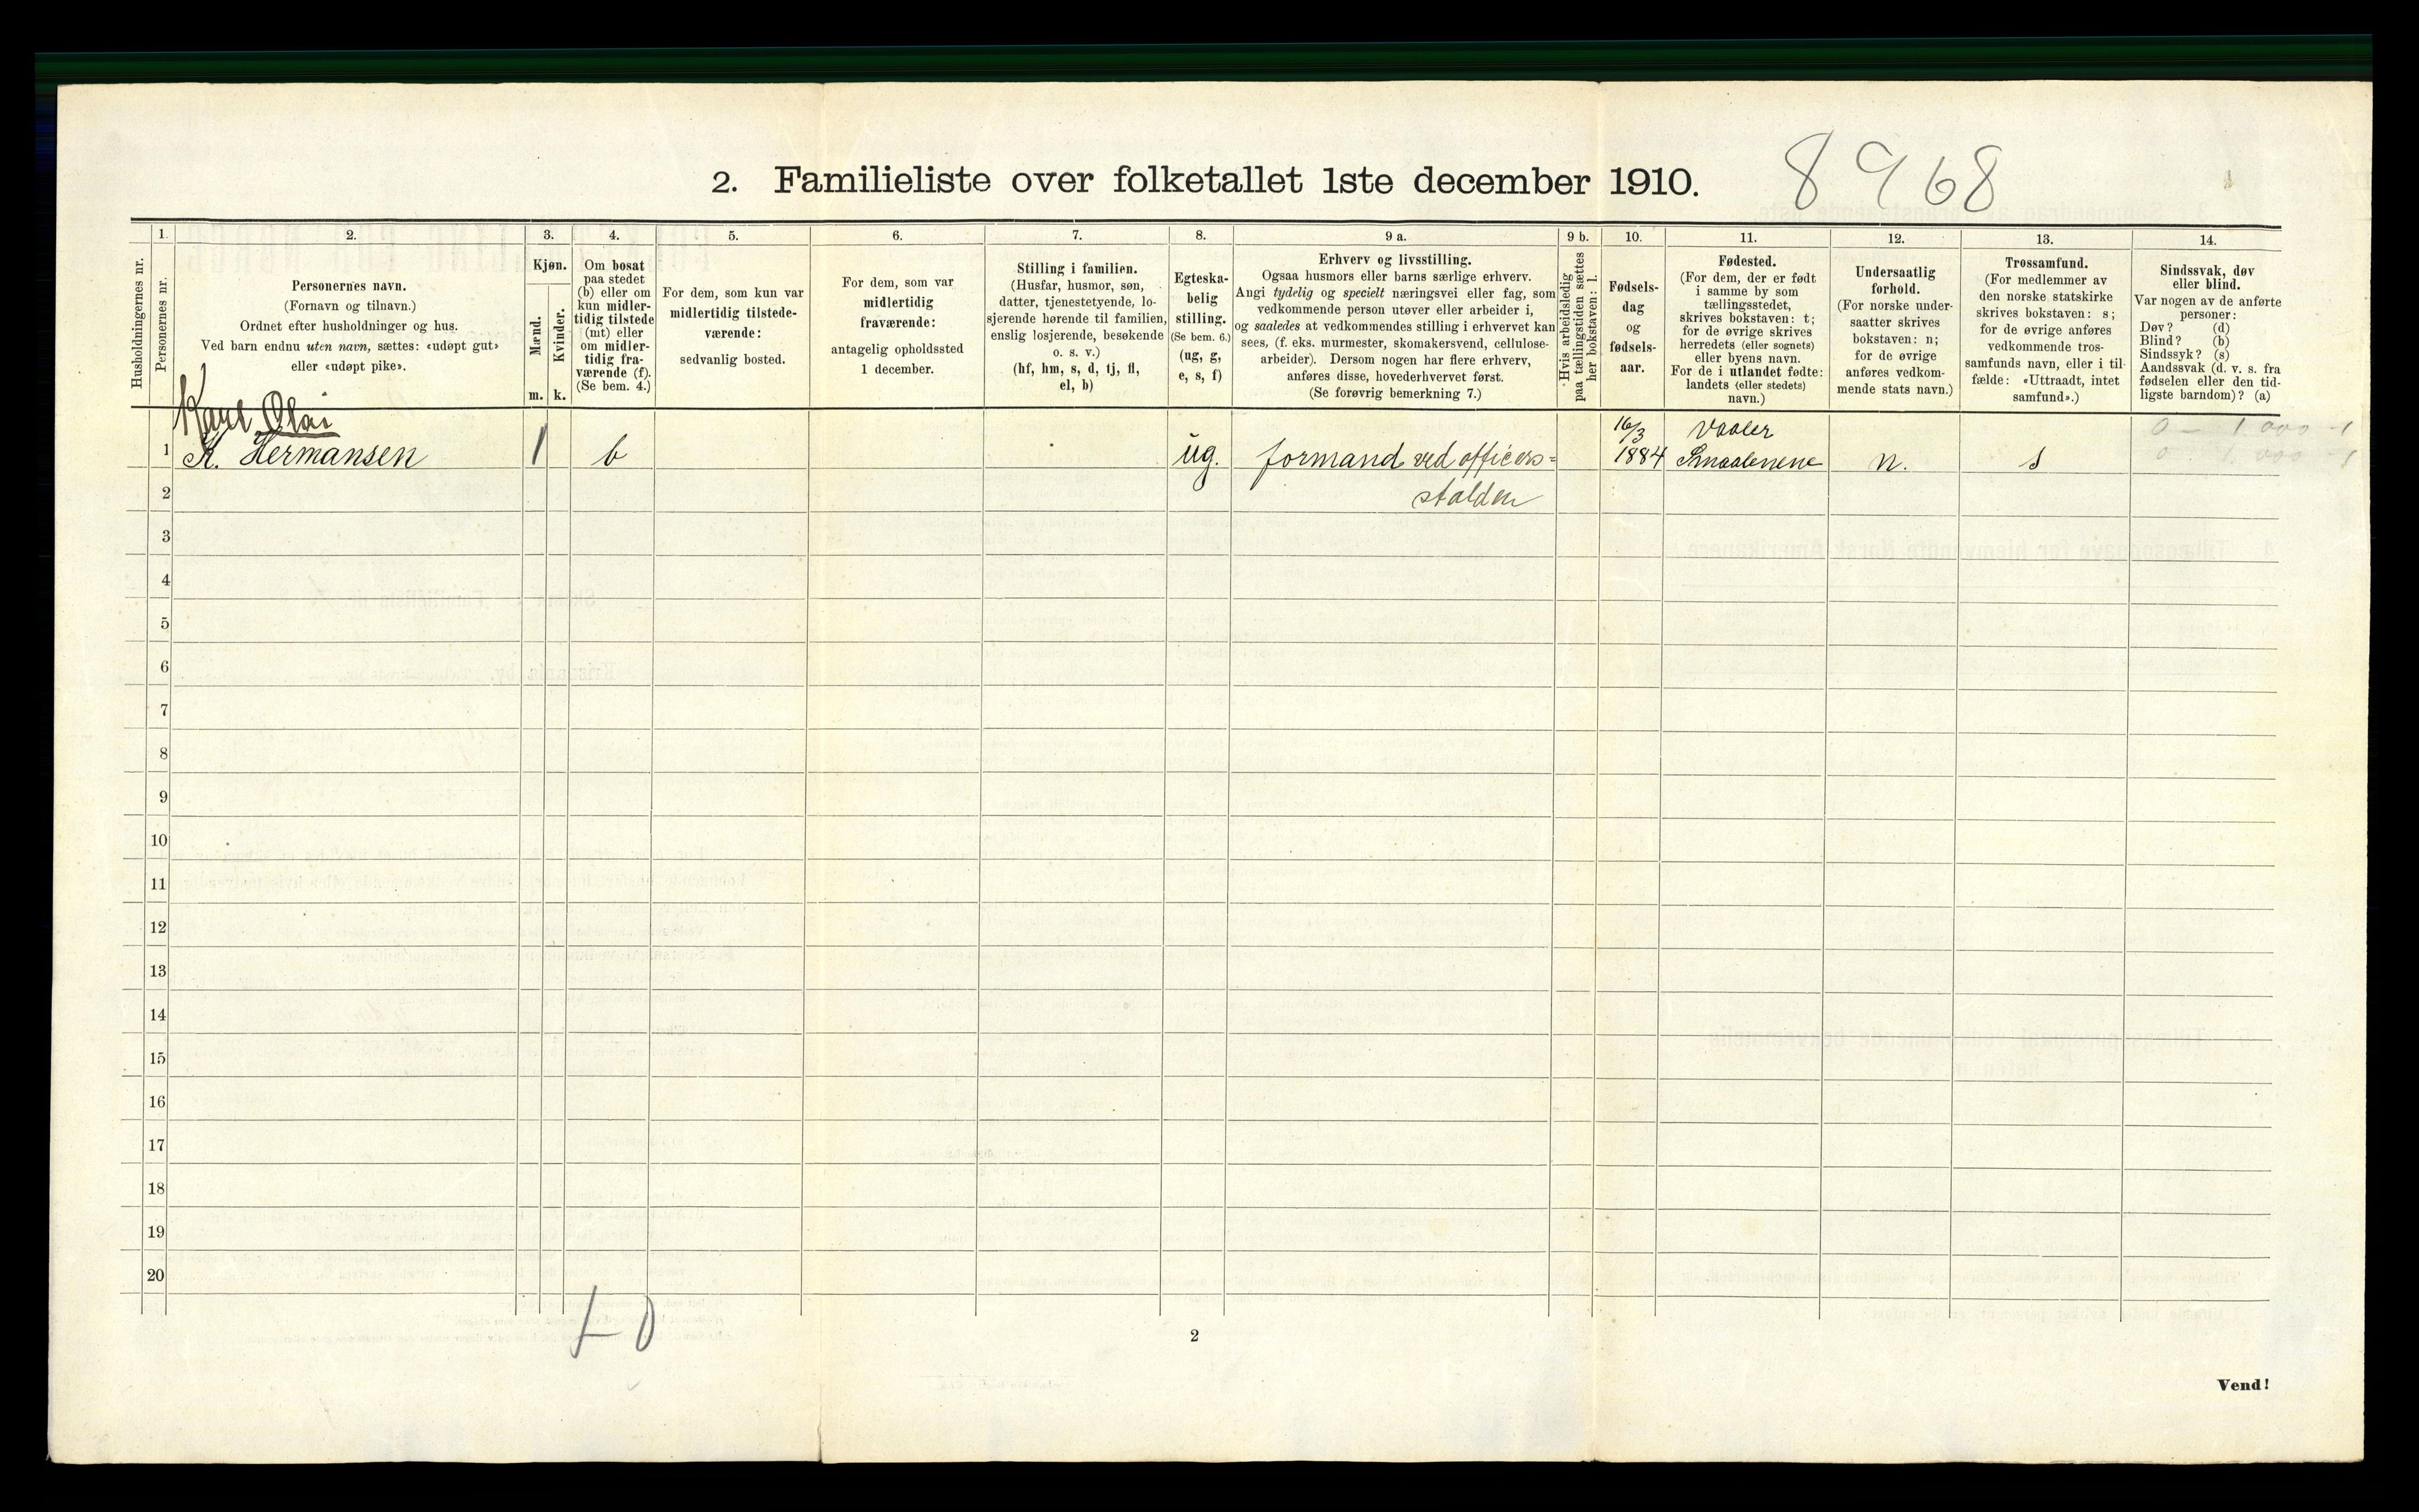 2. Familieliste over folketallet 1ste december 1910.
8968
1. 2. 3. 4. 5. 6. 7. 8. 9 a. 9 b. 10. 11. 12. 13. 14.
Husholdningernes nr.
Personernes nr.
Personernes navn.
(Fornavn og tilnavn.)
Ordnet efter husholdninger og hus.
Ved barn endnu uten navn, sættes: «udøpt gut»
eller «udøpt pike».
Kjøn.
Mænd.
Kvinder.
m. k.
Om bosat
paa stedet
(b) eller om
kun midler-
tidig tilstede
(mt) eller
om midler-
tidig fra-
værende (f).
(Se bem. 4.)
For dem, som kun var
midlertidig tilstede-
værende:
sedvanlig bosted.
For dem, som var
midlertidig
fraværende:
antagelig opholdssted
1 december.
Stilling i familien.
(Husfar, husmor, søn,
datter, tjenestetyende, lo-
sjerende hørende til familien,
enslig losjerende, besøkende
o. s. v.)
(hf, hm, s, d, tj, fl,
el, b)
Egteska-
belig
stilling.
(Se bem. 6.)
(ug, g,
e, s, f)
Erhverv og livsstilling.
Ogsaa husmors eller barns særlige erhverv.
Angi tydelig og specielt næringsvei eller fag, som
vedkommende person utøver eller arbeider i,
og saaledes at vedkommendes stilling i erhvervet kan
sees, (f. eks. murmester, skomakersvend, cellulose-
arbeider). Dersom nogen har flere erhverv,
anføres disse, hovederhvervet først.
(Se forøvrig bemerkning 7.)
Hvis arbeidsledig
paa tællingstiden sættes
her bokstaven: l.
Fødsels-
dag
og
fødsels-
aar.
Fødested.
(For dem, der er født
i samme by som
tællingsstedet,
skrives bokstaven: t;
for de øvrige skrives
herredets (eller sognets)
eller byens navn.
For de i utlandet fødte:
landets (eller stedets)
navn.)
Undersaatlig
forhold.
(For norske under-
saatter skrives
bokstaven: n;
for de øvrige
anføres vedkom-
mende stats navn.)
Trossamfund.
(For medlemmer av
den norske statskirke
skrives bokstaven: s;
for de øvrige anføres
vedkommende tros-
samfunds navn, eller i til-
fælde: «Uttraadt, intet
samfund».)
Sindssvak, døv
eller blind.
Var nogen av de anførte
personer:
Døv? (d)
Blind? (b)
Sindssyk? (s)
Aandssvak (d. v. s. fra
fødselen eller den tid-
ligste barndom)? (a)
Karl Olai 16/3 Vaaler 0 – 1.000 –1
1 K. Hermansen 1 b ug. formand ved officers= 1884 Smaalenene n. s 0 1.000 –1
2 stalden
3
4
5
6
7
8
9
10
11
12
13
14
15
16
17
18
19
20
2
Vend!